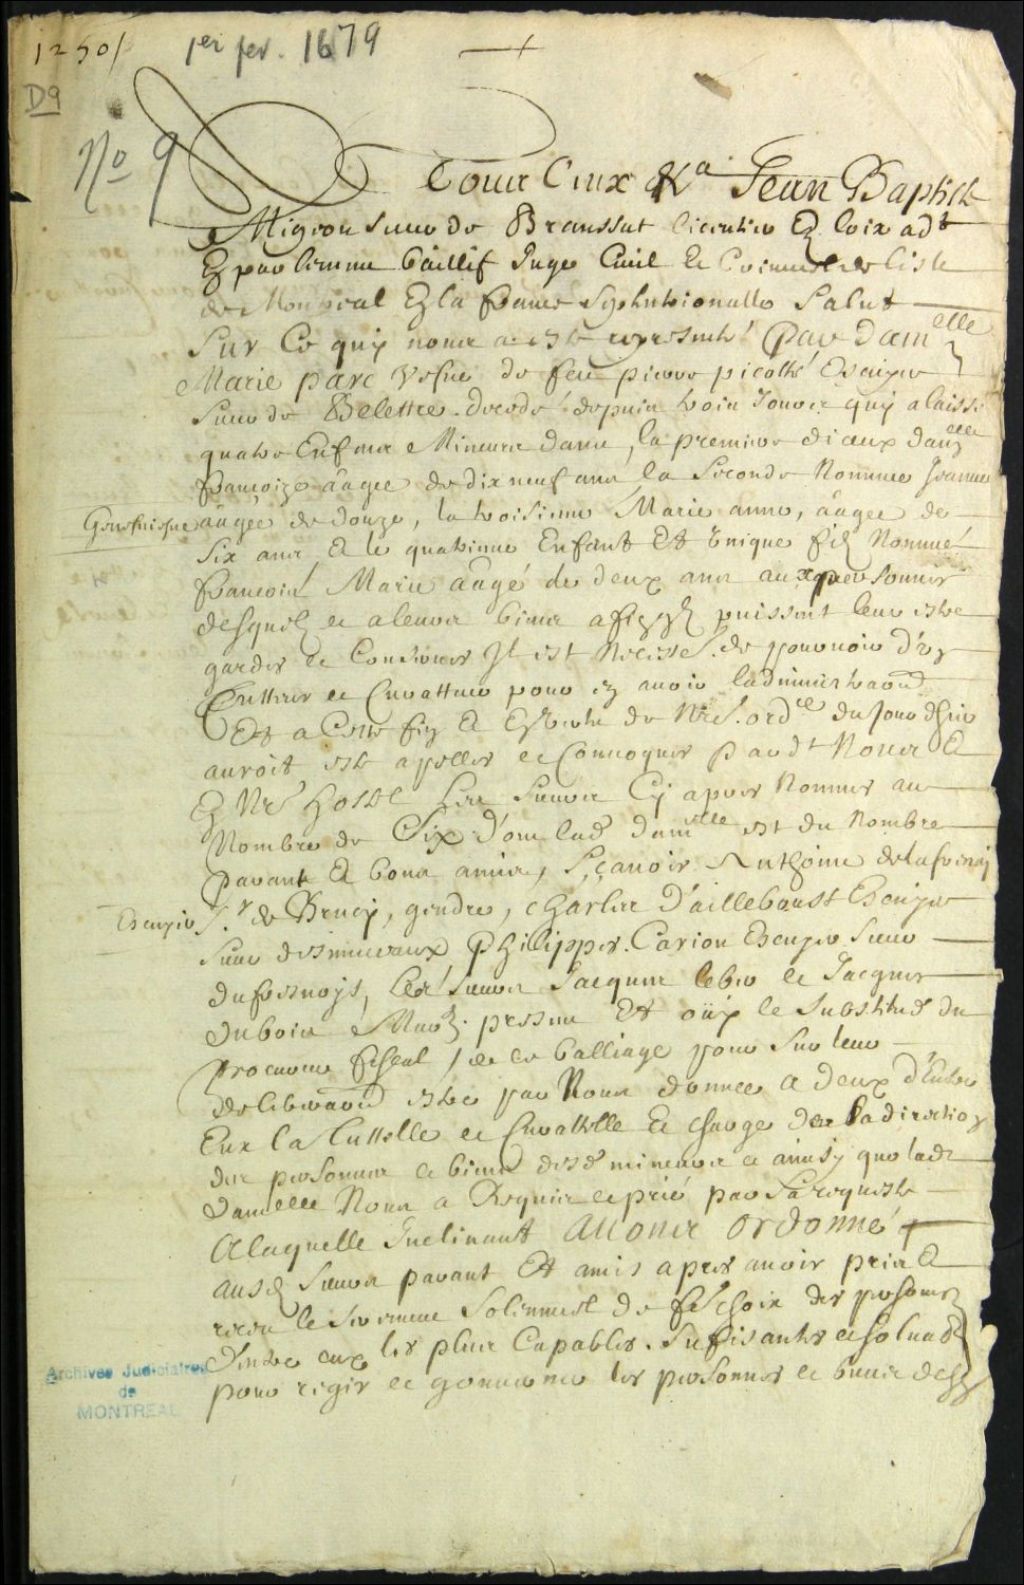 1250/
1er fev. 1679
D9
No 9
A Tous Ceux &a Jean Baptiste
Migeon sieur de Branssat licentié Ez loix adt
En parlement baillif Juge Civil et Criminel de lisle
de Montreal En la france septentrionalle Salut
Sur Ce quy nous a esté represanté Par damelle
Marie parc Vefue de feu pierre picotté Escuyer
Sieur de Belestre decedé depuis trois Jours quy a laissé
quatre Enfans Mineurs dans, la premiere diceux damelle
françoize aagee de dix neuf ans la Seconde Nommee Jeanne
Geneuiefue aagee de douze, la troisieme Marie anne, aagee de
Six ans, Et le quatrieme Enfant Et Vnique fils Nommé
francois Marie aagé de deux ans aux personnes
desquelz et a leurs biens affin quilz puissent leur estre
gardes et Conserues Il est Necesse. de pouruoir d'vn
Tutteur et Curatteur pour en auoir ladministraon
Et a Cette fin Et En Vertu de Nre. ordce du Jour dhier
auroit esté apeller et Conuoquer pardt Nous Et
En Nre hostel les Sieurs Cy apres Nommes au
Nombre de Six d'ont lade damelle est du Nombre
parants Et bons amis, Sçauoir Anthoine delafrenay
Escuyer Sr. de Brucy, gendre, Charles D'ailleboust Escuyer
Sieur desmuceaux Philippes Carion Escuyer Sieur
dufresnoys, les Sieurs Jacques leber et Jacques
dubois Marz. presens Et oüy le Substitud du
procureur fiscal de ce balliage pour Sur leur
deliberaon estre par Nous donnee a deux d'Entre
Eux la tuttelle et Curattelle Et charge de la direction
des personnes et biens desd mineurs et ainsy que lade
damelle Nous a Requis et prié par Sa requeste
A laquelle Inclinant Auons ordonné
ausd Sieurs parants Et amis apres auoir pris Et
receu le Serment Solemnel de fe. choix des personnes
d'Entre eux les plus Capables. Sufisantes et soluables
pour regir et gouuerner les personnes et biens desd
Archives Judiciaires
de
MONTREAL